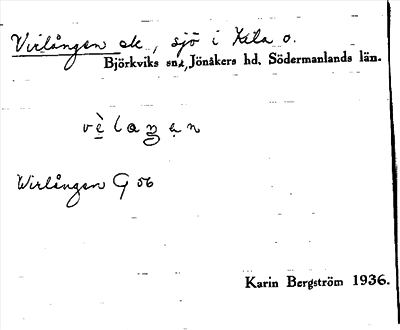 Virlången ek., sjö i Kila o.
Björkviks snr, Jönåkers hd. Södermanlands län.
Wirlången G 56
Karin Bergström 1936.